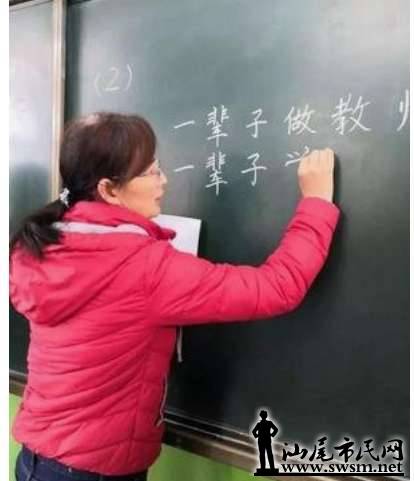 (2)
一辈子做教
一辈子
汕尾市民网
www.swsm.net